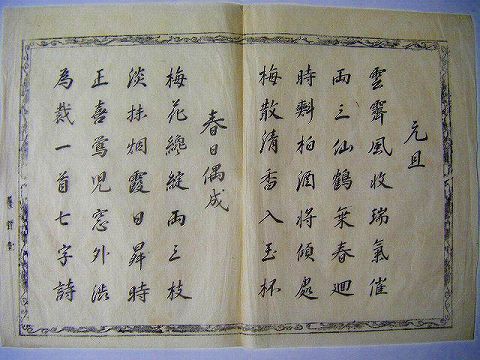 元旦
雲霽風收瑞氣催
両三仙鶴乗春廻
時斟柏酒将傾處
梅散清香入玉杯
春日偶成
梅花纔綻両三枝
淡抹烟霞日昇時
正喜鶯児窓外澁
為裁一首七字詩